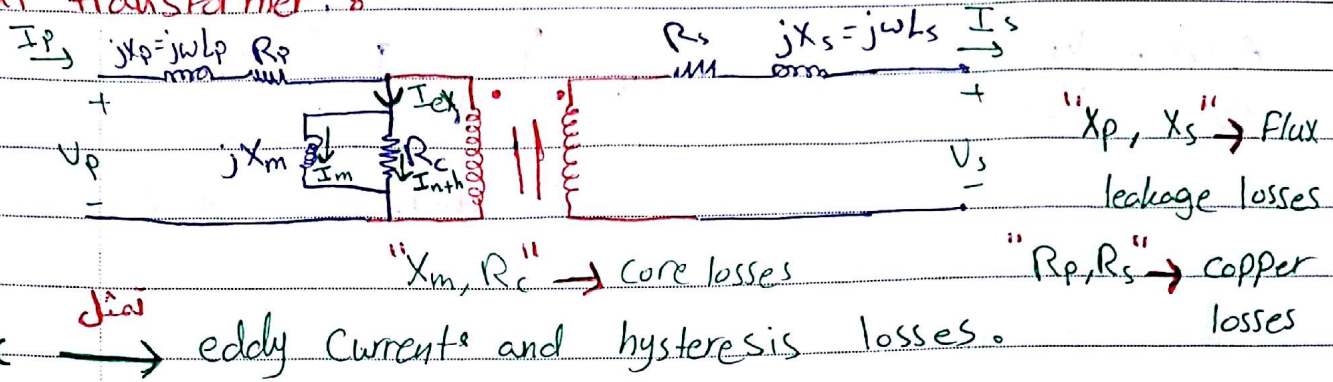 transformer.
Ip jXp=jωLp Rp Rs jXs=jωLs Is
+ Iex +
Vp jXm Im Rc In+h Vs
- -
"Xp, Xs" → Flux
leakage losses
"Xm, Rc" → Core losses
"Rp,Rs" → copper
losses
تمثل
→ eddy Currents and hysteresis losses.